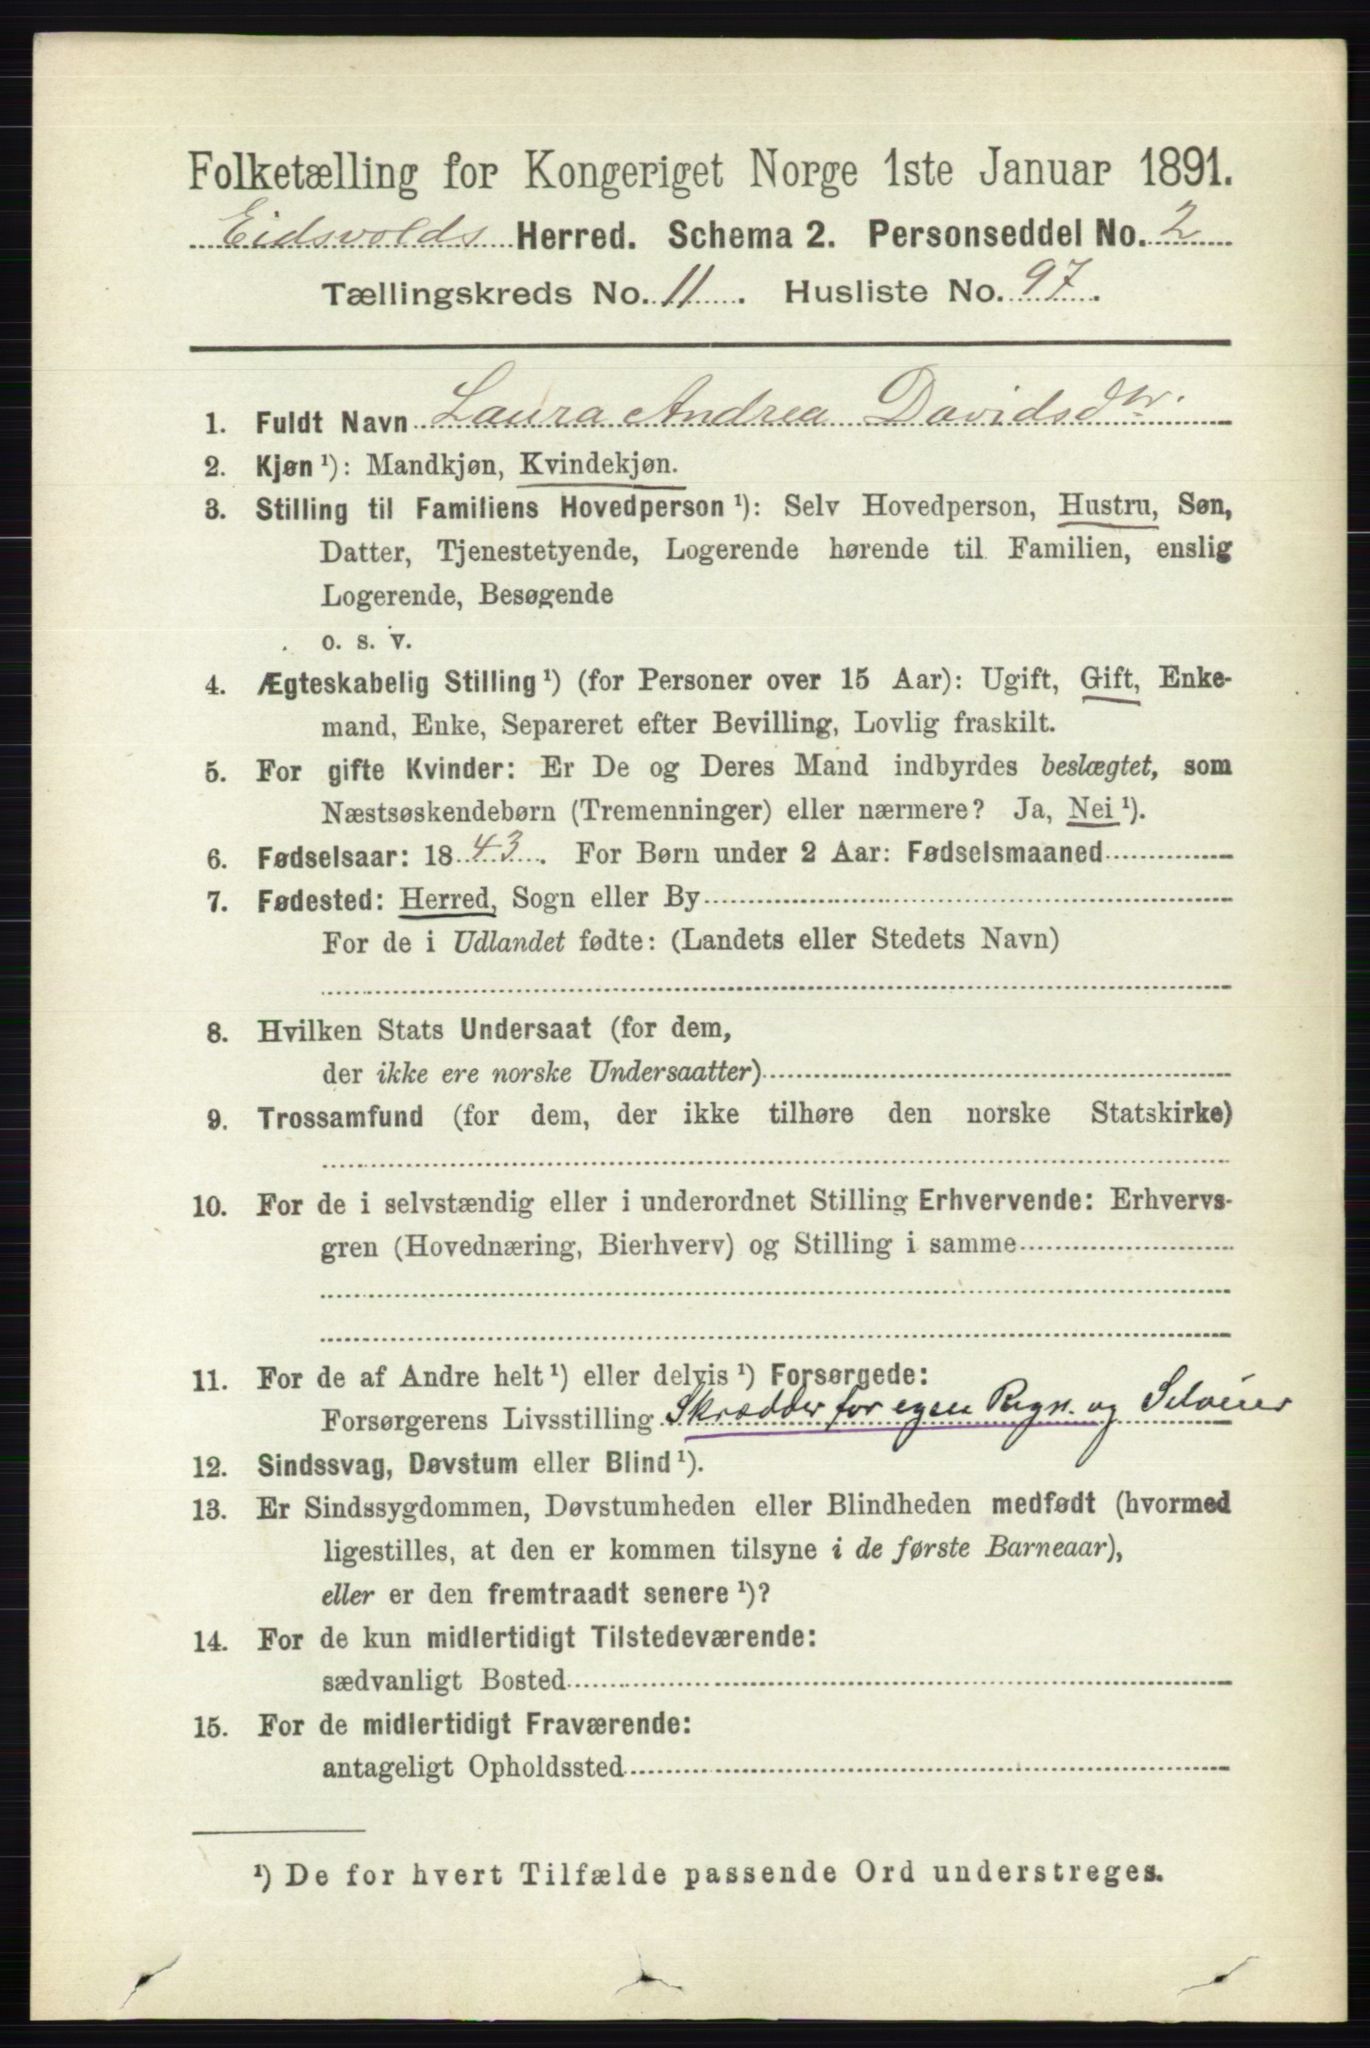 Folketælling for Kongeriget Norge 1ste Januar 1891.
Eidsvolds Herred. Schema 2. Personseddel No. 2
Tællingskreds No. 11. Husliste No. 97.
1. Fuldt Navn Laura Andrea Davidsdtr.
2. Kjøn ¹): Mandkjøn, Kvindekjøn.
3. Stilling til Familiens Hovedperson ¹): Selv Hovedperson, Hustru, Søn,
Datter, Tjenestetyende, Logerende hørende til Familien, enslig
Logerende, Besøgende
o. s. v.
4. Ægteskabelig Stilling ¹) (for Personer over 15 Aar): Ugift, Gift, Enke-
mand, Enke, Separeret efter Bevilling, Lovlig fraskilt.
5. For gifte Kvinder: Er De og Deres Mand indbyrdes beslægtet, som
Næstsøskendebørn (Tremenninger) eller nærmere? Ja, Nei ¹).
6. Fødselsaar: 1843. For Børn under 2 Aar: Fødselsmaaned
7. Fødested: Herred, Sogn eller By
For de i Udlandet fødte: (Landets eller Stedets Navn)
8. Hvilken Stats Undersaat (for dem,
der ikke ere norske Undersaatter)
9. Trossamfund (for dem, der ikke tilhøre den norske Statskirke)
10. For de i selvstændig eller i underordnet Stilling Erhvervende: Erhvervs-
gren (Hovednæring, Bierhverv) og Stilling i samme
11. For de af Andre helt ¹) eller delvis ¹) Forsørgede:
Forsørgerens Livsstilling Skrædder for egen Regn. og Selveier
12. Sindssvag, Døvstum eller Blind ¹).
13. Er Sindssygdommen, Døvstumheden eller Blindheden medfødt (hvormed
ligestilles, at den er kommen tilsyne i de første Barneaar),
eller er den fremtraadt senere ¹)?
14. For de kun midlertidigt Tilstedeværende:
sædvanligt Bosted
15. For de midlertidigt Fraværende:
antageligt Opholdssted
¹) De for hvert Tilfælde passende Ord understreges.